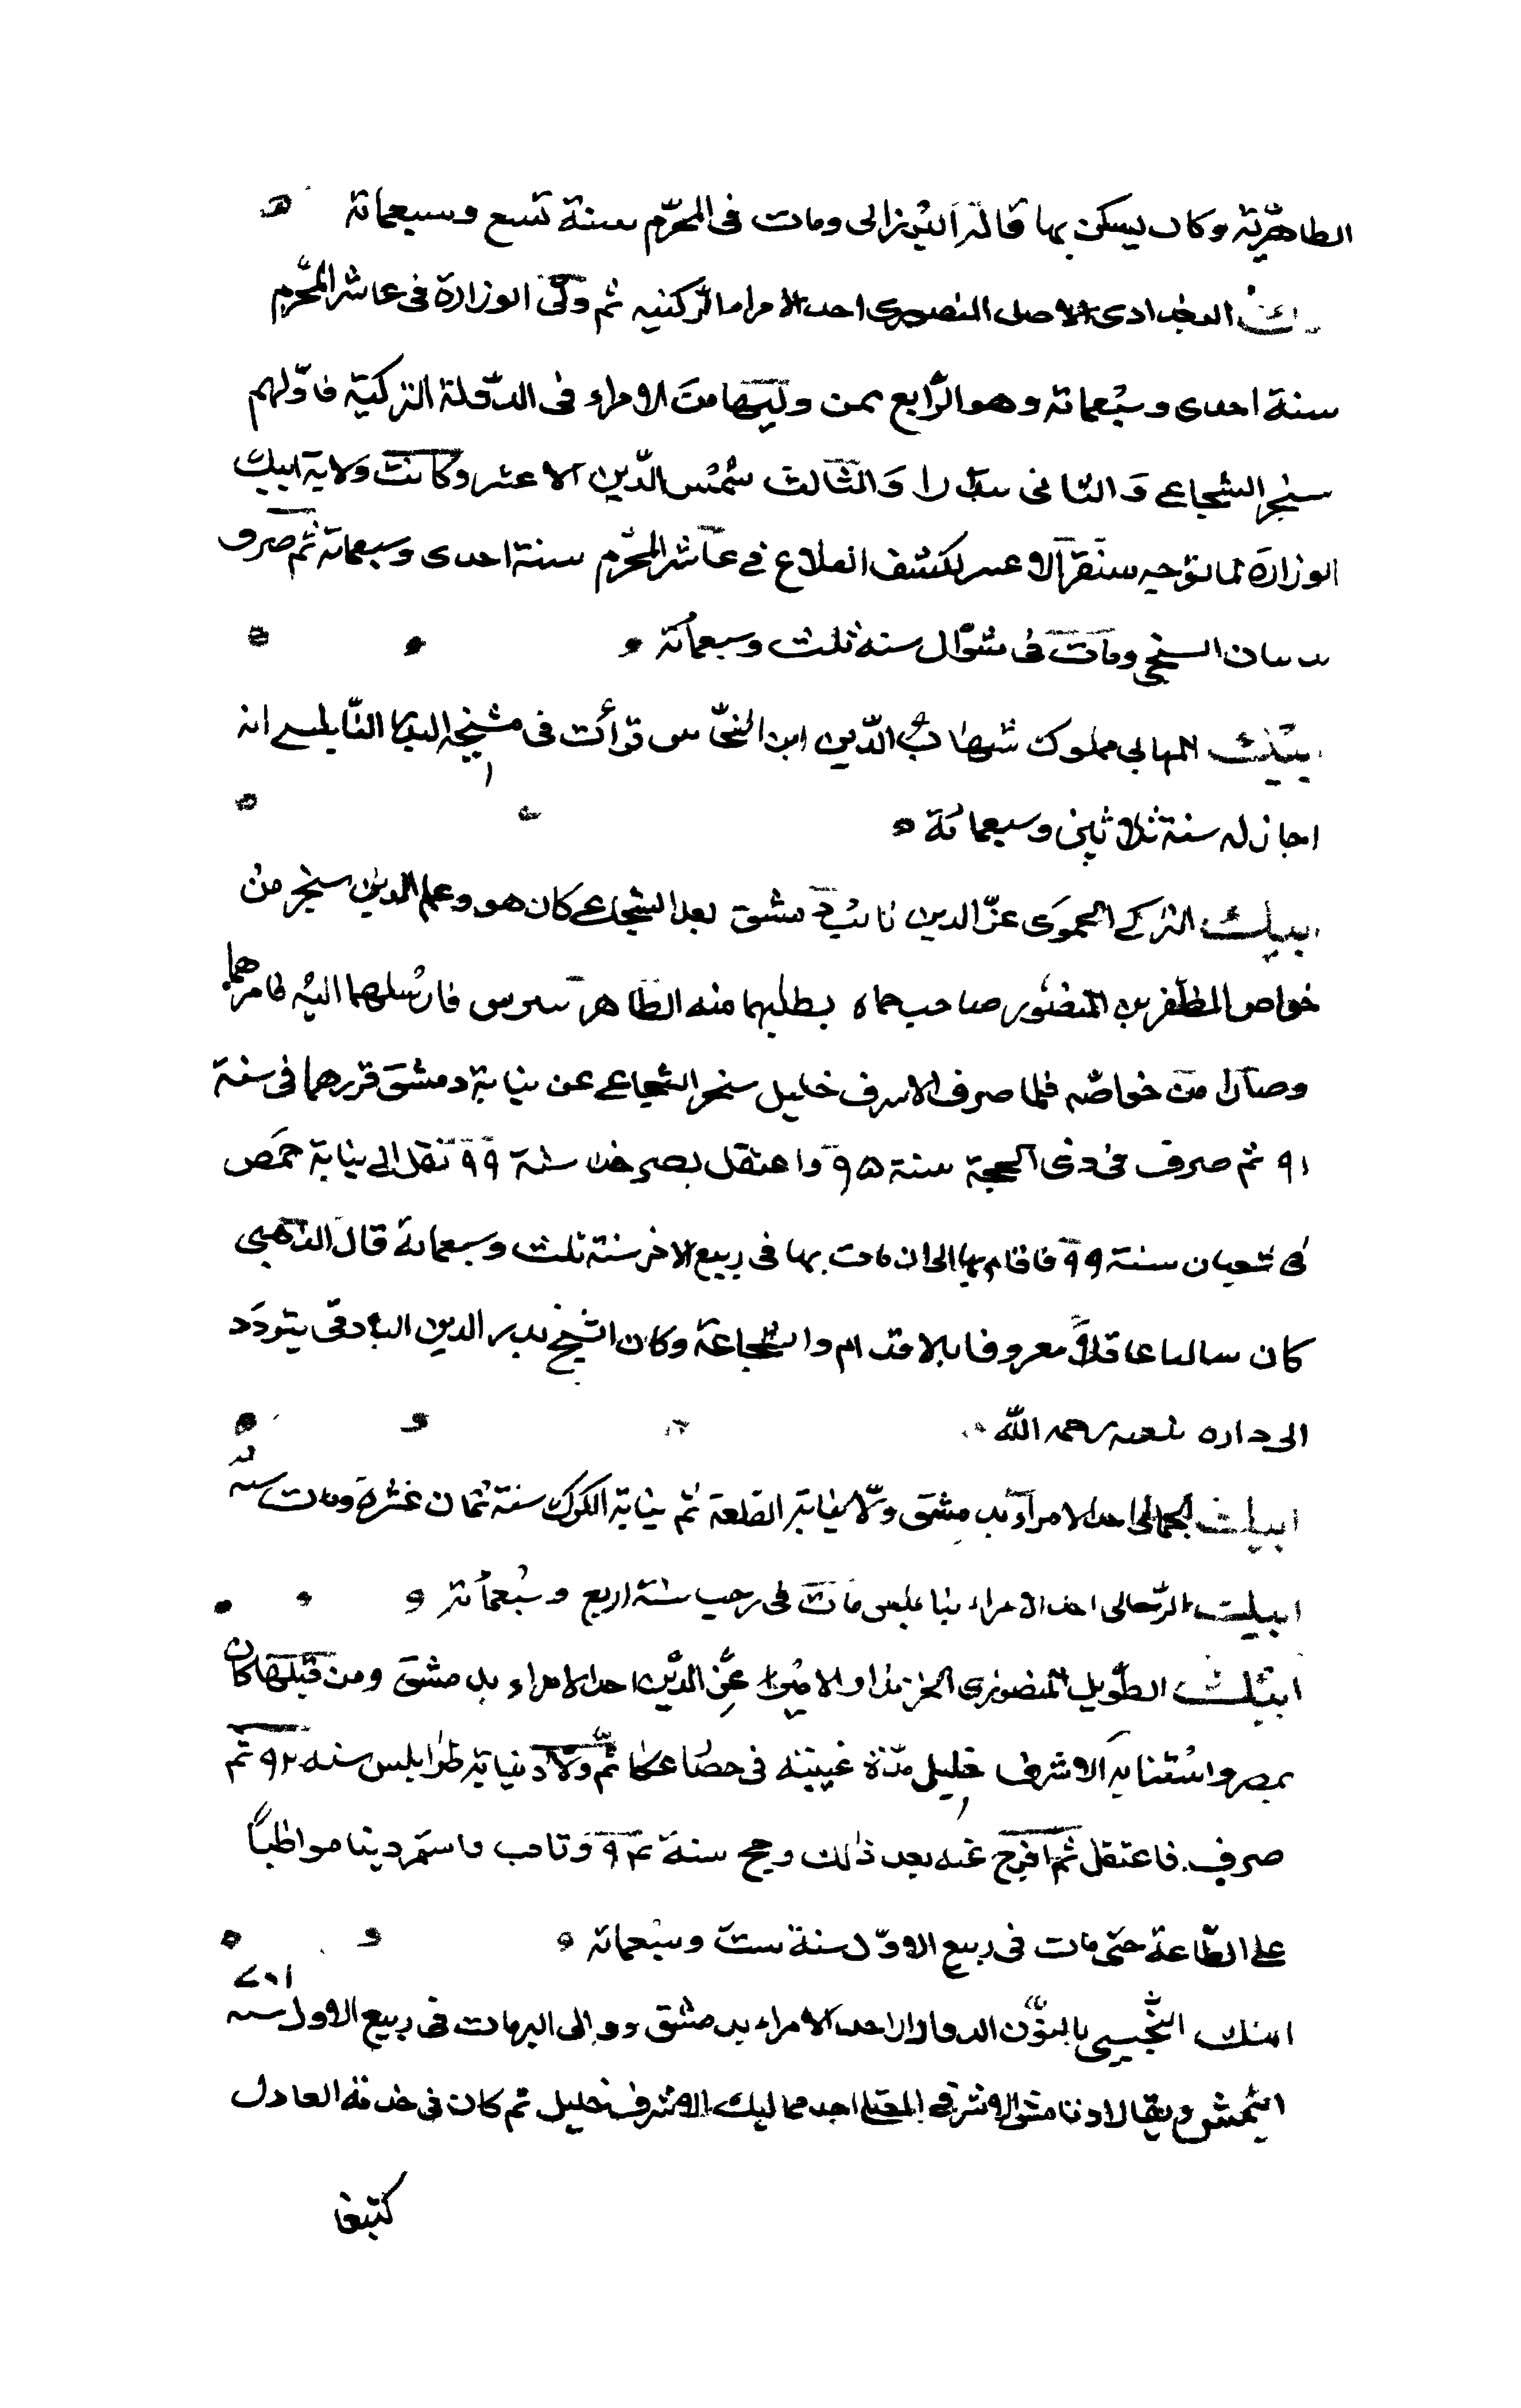 الظاهرية وكان يسكن بها قاله البرزالى ومات فى المحرم سنة تسع وسبعمائة
البغدادى الاصل المنصورى احد الامراء التركنيه ثم ولى الوزارة فى عاشر المحرم
سنة احدى وسبعمائة وهو الرابع ممن وليها من الامراء فى الدولة التركية فاولهم
سنجر الشجاعى والثانى بيدرا والثالث شمس الدين الاعسر وكانت ولاية ايبك
الوزارة لما توجه سنقر الاعسر لكشف القلاع فى عاشر المحرم سنة احدى وسبعمائة ثم صرف
ومات فى شوال سنة ثلث وسبعمائة
ايبك مملوك شهاب الدين ابن النحاس قرأت فى مشيخة النابلسى انه
اجاز له سنة ثلاثين وسبعمائة
ايبك التركى الحموى عز الدين نائب دمشق بعد الشجاعى كان هو وعلم الدين سنجر من
خواص المظفر بن المنصور صاحب حماه يطلبهما منه الظاهر بيبرس فارسلهما اليه فامرهما
وصارا من خواصه فلما صرف الاشرف خليل سنجر الشجاعى عن نيابة دمشق قررهما فى سنة
٩١ ثم صرف فى ذى الحجة سنة ٩٥ واعتقل بصرخد سنة ٩٩ نقل الى نيابة حمص
فى شعبان سنة ٩٩ فاقام بها الى ان مات بها فى ربيع الاخر سنة ثلث وسبعمائة قال الذهبى
كان عاقلا معروفا بالاقدام والشجاعة وكان الشيخ بدر الدين يتردد
الى داره رحمه الله
ايبك الجمالى احد الامراء بدمشق ولى نيابة القلعة ثم نيابة الكرك سنة ثمان عشرة ومات سنة
ايبك احد الامراء بنابلس مات فى رجب سنة اربع وسبعمائة
ايبك الطويل المنصورى الخزندار الامير عز الدين احد الامراء بدمشق ومن قبلها كان
بمصر واستنابه الاشرف خليل مدة غيبته فى حصار عكا ثم ولاه نيابة طرابلس سنة ٩٢ ثم
صرف فاعتقل ثم افرج عنه بعد ذلك وحج سنة ٩٤ وتاب واستمر دينا مواظبا
على الطاعة حتى مات فى ربيع الاول سنة ست وسبعمائة
٧٠١
ايبك النجيبى بالنون الدوادار احد الامراء بدمشق ووالى البر مات فى ربيع الاول سنة
ايتمش ويقال اوتامش الاشرفى احد مماليك الاشرف خليل ثم كان فى خدمة العادل
كتبغا